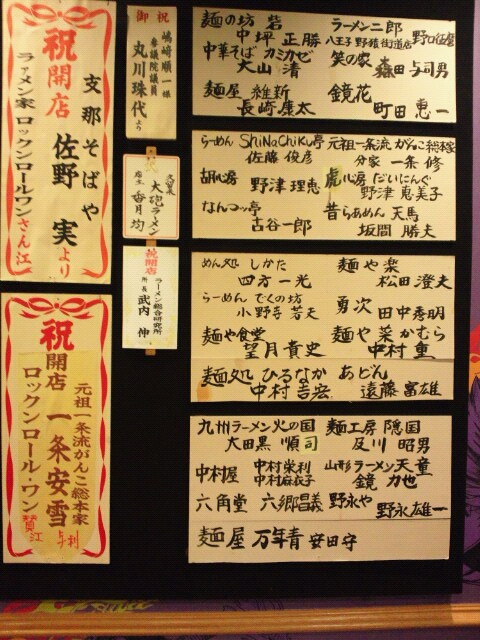 祝
開店
支那そばや
佐野 実 より
ラァメン家 ロックンロールワンさん江
祝
開店
元祖一条流がんこ総本家
一条安雪
ロックンロール・ワン
賛江
与利
御祝
嶋崎順一様
参議院議員
丸川珠代より
久留米
大砲ラーメン
店主 香月 均
祝開店
ラーメン総合研究所
所長 武内 伸
麺の坊 砦
中坪 正勝
中華そば カミカゼ
大山 清
麺屋 維新
長崎康太
ラーメン二郎
八王子 野猿街道店
笑の家
森田 与司男
鏡花
町田 恵一
らーめん ShiNaChiKu亭
佐藤 俊彦
胡心房 野津 理恵
なんつッ亭
古谷一郎
元祖一条流がんこ総本家
分家 一条 修
虎心房 だいにんぐ
野津 恵美子
昔らあめん 天馬
坂間 勝夫
めん処 しかた
四方 一光
らーめん でくの坊
小野寺 芳夫
麺や食堂
望月貴史
麺処 ひるなか
中村吉宏
麺や楽
松田 澄夫
勇次 田中秀明
麺や菜かむら
中村 重
あどん
遠藤富雄
九州ラーメン火の国
大田黒 順司
中村屋 中村栄利
中村麻衣子
六角堂 六郷昌義
麺屋 万年青 安田守
麺工房 隠国
及川 昭男
山形ラーメン天童
鏡 力也
野永や
野永雄一